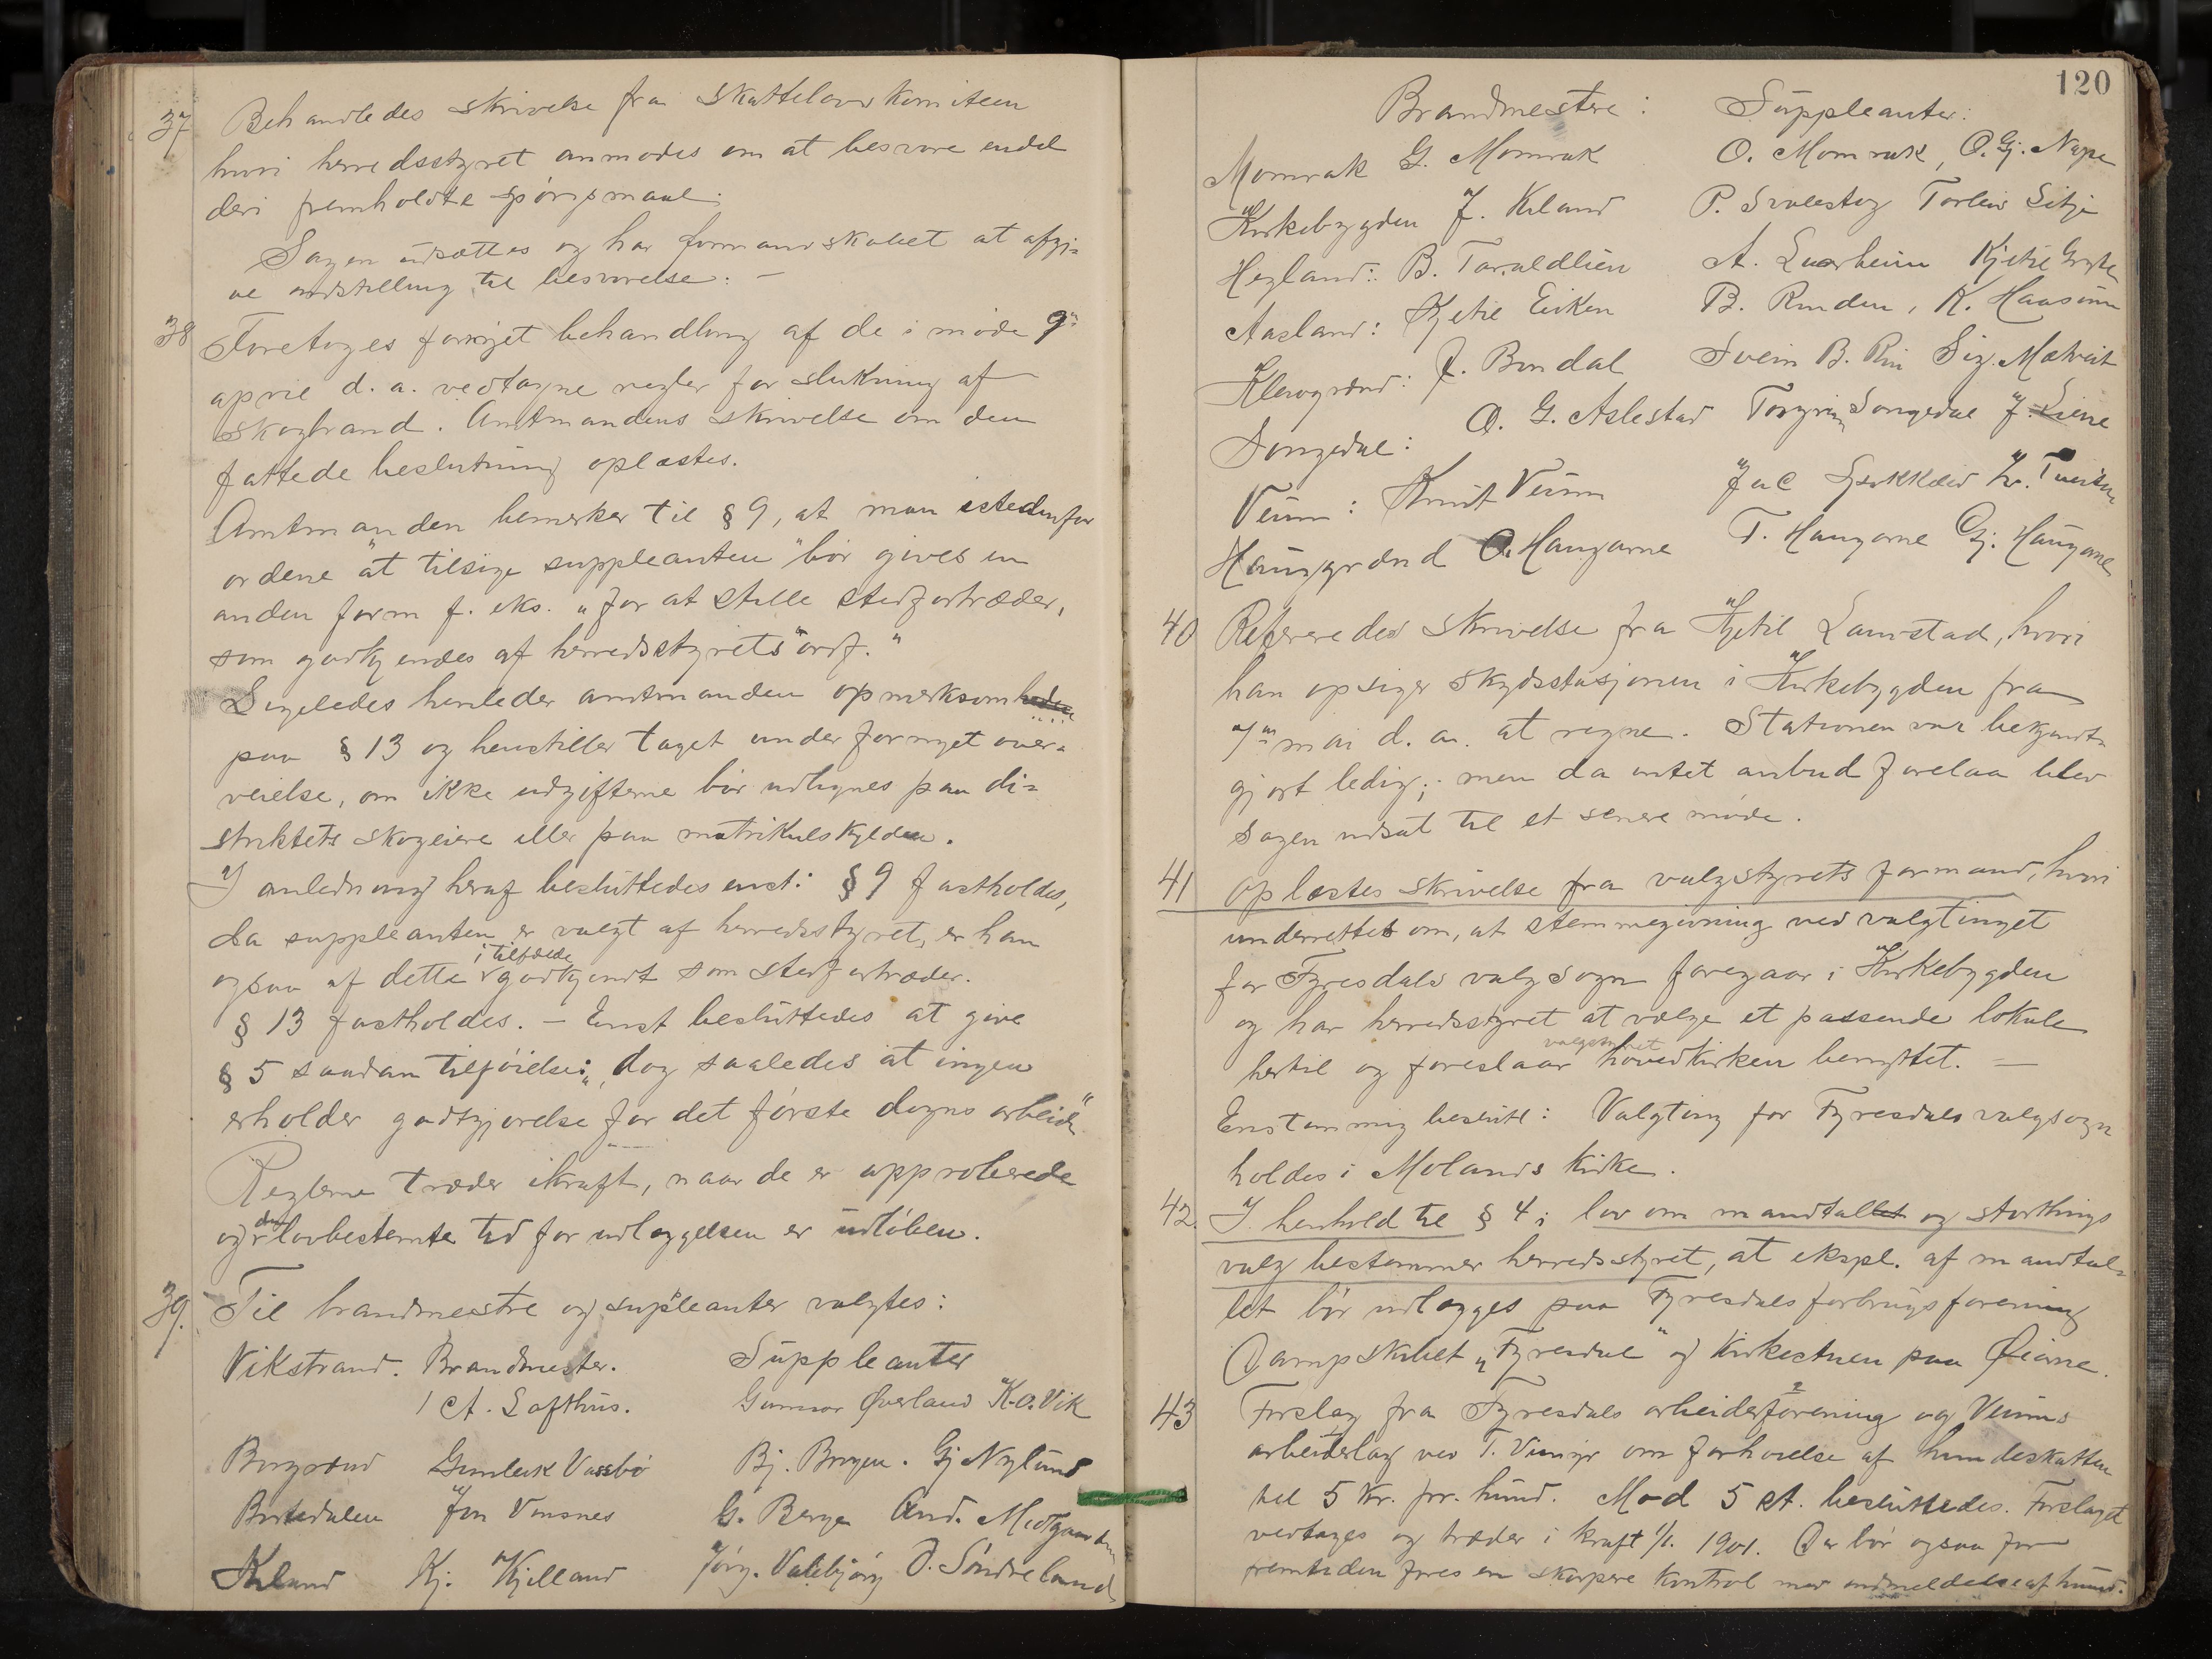 37 Behandledes skrivelse fra Skattelovskomiteen
hvori herredsstyret anmodes om at besvare endel
deri fremholdte spørgsmaal.
Sagen udsættes og har formandskabet at afgi-
ve indstilling til besvarelse. —
38 Foretoges fornyet behandling af de i møde 9de
april d. a. vedtagne regler for slukning af
skogbrand. Amtmandens skrivelse om den
fattede beslutning oplæstes.
Amtmanden bemerker til § 9, at man istedenfor
ordene "at tilsige suppleanten" bør gives en
anden form f. eks. "for at stille stedfortræder,
som godkjendes af herredsstyrets ordf."
Ligeledes henleder amtmanden opmerksomheden
paa § 13 og henstiller taget under fornyet over-
veielse, om ikke udgifterne bør udlignes paa di-
striktets skogeiere eller paa matrikulskylden.
I anledning heraf besluttedes enst: § 9 fastholdes,
da suppleanten er valgt af herredsstyret, er han
ogsaa af dette i tilfælde godkjendt som stedfortræder.
§ 13 fastholdes. — Enst besluttedes at give
§ 5 saadan tilføielse: "dog saaledes at ingen
erholder godtgjørelse for det første døgns arbeide"
Reglerne træder ikraft, naar de er approberede
og den lovbestemte tid for udlæggelsen er udløben.
39. Til brandmestre og suppleanter valgtes:
Vikstrand. Brandmester. Suppleanter
1 A. Lofthus. Gunnar Øverland K. O. Vik
Borggrænd Gunleik Vassbø Bj. Borgen. Gj Nylund
Bortedalen Jon Vonsnes G. Berge And. Midtgaarden
Kiland Kj. Kjelland Jørg. Valebjørg O. Søndreland
120
Brandmestere: Suppleanter:
Momrak G. Momrak O. Momrak, O. Gj. Nape
Kirkebygden J. Kiland P. Svalestog Torleiv Sitje
Hegland: B. Taraldlien A. Kjetil
Aasland: Kjetil Eiken B. Rinden, K. Haasum
Klevgrænd: J. Bondal Svein B. Rui Sig. Molveit
Songedal: O. G. Aslestad Torgrim Songedal J. Liene
Veum: Knut Veum
Hauggrænd O. Haugarne T. Haugarne Gj. Haugarne
40 Refereredes skrivelse fra Kjetil Lauvstad, hvori
han opsiger skydsstasjonen i Kirkebygden fra
1ste mai d. a. at regne. Stationen var bekjendt-
gjort ledig; men da intet anbud forelaa blev
sagen udsat til et senere møde.
41 Oplæstes skrivelse fra valgstyrets formand, hvori
underrettet om, at stemmegivning ved valgtinget
for Fyresdals valgsogn foregaar i Kirkebygden
og har herredsstyret at vælge et passende lokale
hertil og foreslaar valgstyret hovedkirken benyttet. —
Enstemmig beslutt: Valgting for Fyresdals valgsogn
holdes i Molands kirke.
42. I henhold til § 4 i lov om mandtallet og storthings
valg bestemmer herredsstyret, at ekspl. af mandtal-
let bør udlægges paa Fyresdals forbrugsforening
Dampskibet "Fyresdal" og Kirkestuen paa Øierne.
43 Forslag fra Fyresdals arbeiderforening og Veums
arbeiderlag ved T. om forhøielse af hundeskatten
til 5 kr. pr. hund. Mod 5 st. besluttedes. Forslaget
vedtages og træder i kraft 1/1. 1901. Der bør ogsaa for
fremtiden føres en skarpere kontrol med indmeldelse af hund.